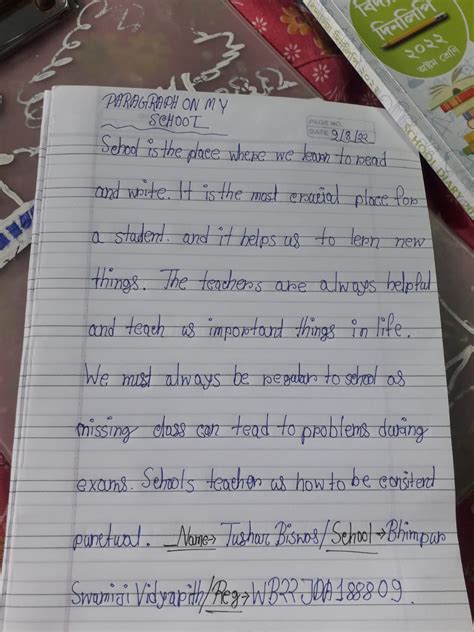 বিদ্যা
দিনলিপি
২০২২
অষ্টম শ্রেণি
SCHOOL DIARY
PARAGRAPH ON MY
SCHOOL
PAGE NO.
DATE 9/8/22
School is the place where we learn to read
and write. It is the most crucial place for
a student. and it helps us to lern new
things. The teachers are always helpful
and teach us important things in life.
We must always be regular to school as
missing class can tead to problems during
exams. Schools teacher us how to be consiterd
punctual. Name→ Tushar Biswas/School→Bhimpur
Swamiji Vidyapith/Reg→WB22JDA188809.